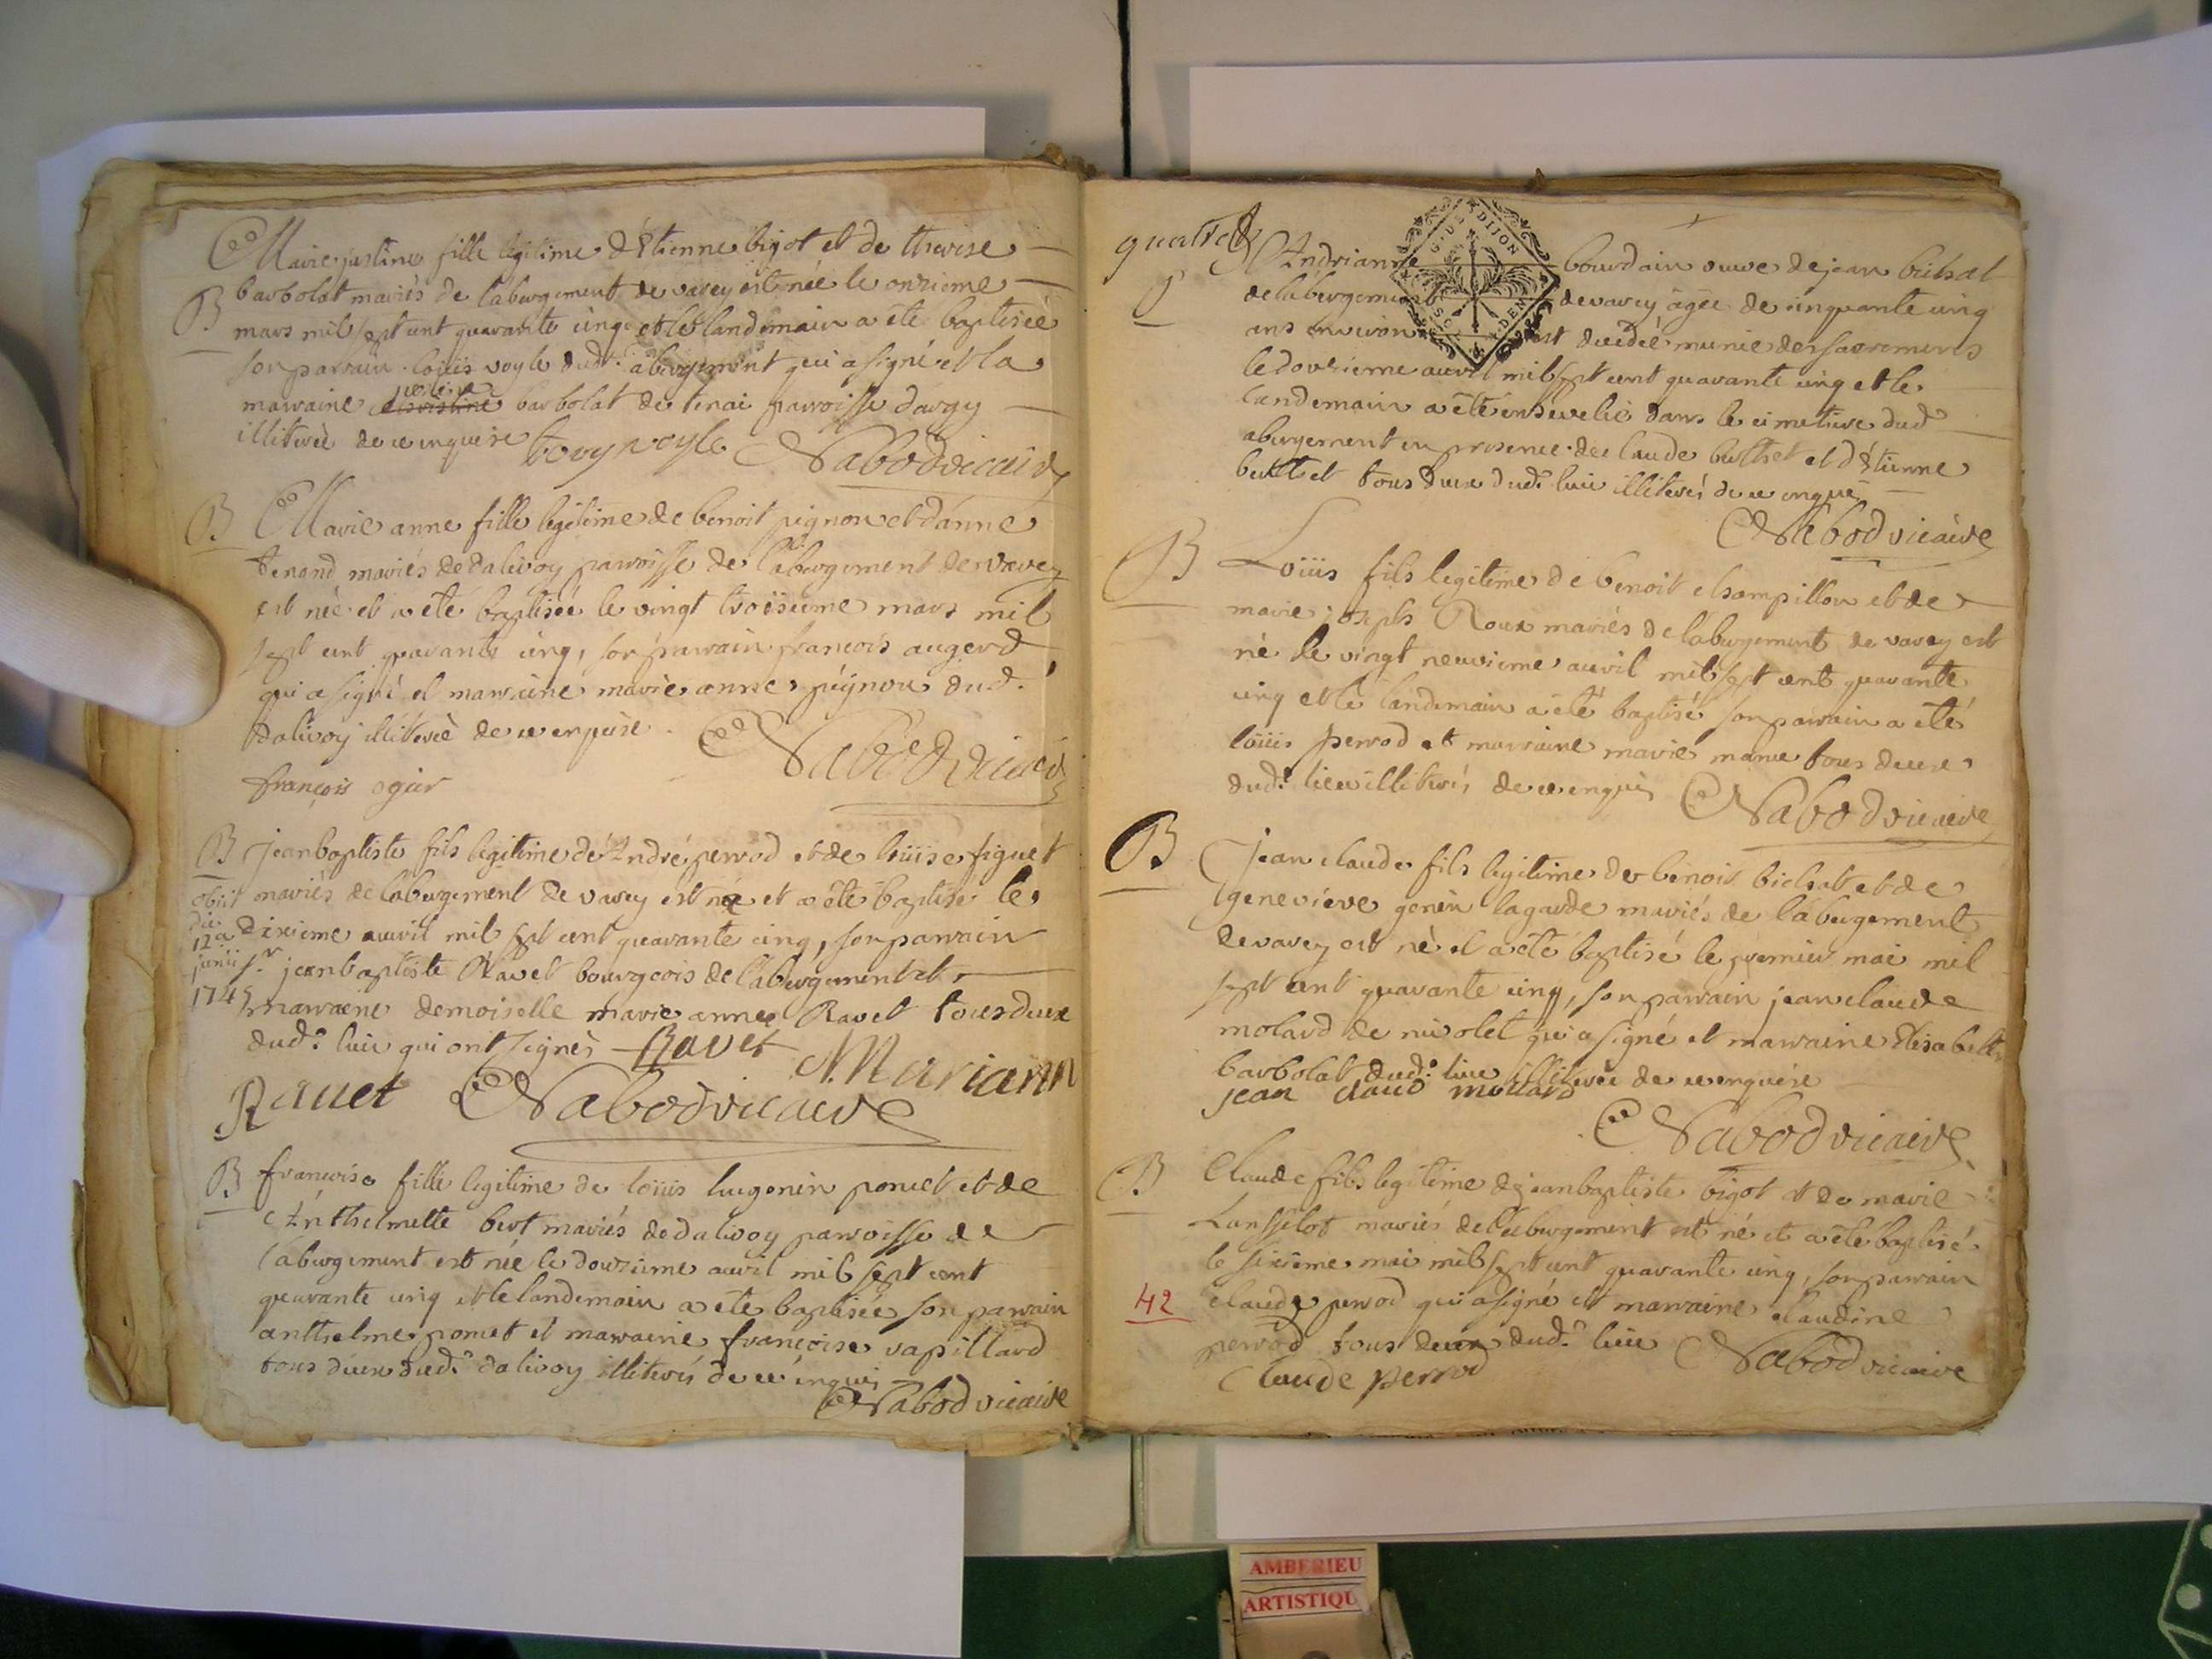 Marie justine fille legitime d'Etienne bigot et de therese
B
barbolat mariés de labergement de varey est née le onzieme
mars mil sept cent quarante cinq et le landemain a été baptisée
son parrain loüis voyle dud. abergement qui a signé et la
marraine barbolat de tenai parroisse dargy
illiterée de ce enquise
Nabod vicaire
B
Marie anne fille legitime de benoit pignon et danne
tenand mariés de dalivoy parroisse de labergement de varey
est née et a été baptisée le vingt troisieme mars mil
sept cent quarante cinq, son parrain françois augerd
qui a signé et marraine marie anne pignon dud.
dalivoy illiterée de ce enquise
Nabod vicaire
françois ogier
B
jean baptiste fils legitime d'André perrod et de loüise figuet
mariés de labergement de varey est né et a été baptisé le
dixieme avril mil sept cent quarante cinq, son parrain
sr. jean baptiste Ravet bourgeois de labergement et
marraine demoiselle marie anne Ravet tous deux
dud. lieu qui ont signés Ravet
obiit
die
12a
junii
1745
Mariann
Rauet
Nabod vicaire
B
francoise fille legitime de loüis hugonin poncet et de
Anthelmette bert mariés de dalivoy parroisse de
labergement est née le douzieme avril mil sept cent
quarante cinq et le landemain a été baptisée son parrain
anthelme poncet et marraine françoise vapillard
tous deux dud. dalivoy illiterés de ce enquis
Nabod vicaire
quatre
Andrianne bourdain veuve de jean bichat
de labergement de varey âgée de cinquante cinq
ans environ est decedée munie des sacremens
le douzieme avril mil sept cent quarante cinq et le
landemain a été ensevelie dans le cimetiere dud
abergement en presence de claude et d'Etienne
tous deux dud. lieu illiterés de ce enquis
Nabod vicaire
G. DIJON
B
Loüis fils legitime de benoit champillon et de
marie joseph Roux mariés de labergement de varey est
né le vingt neuvieme avril mil sept cent quarante
cinq et le landemain a été baptisé son parrain a été
loüis perrod et marraine marie tous deux
dud. lieu illiterés de ce enquis
Nabod vicaire
B
jean claude fils legitime de benoit bichat et de
geneviève genin lagarde mariés de labergement
de varey est né et a été baptisé le premier mai mil
sept cent quarante cinq, son parrain jean claude
molard de nivolet qui a signé et marraine Elisabeth
barbolat dud. lieu illiterée de ce enquise
jean claud mollard
Nabod vicaire
B
Claude fils legitime de jean baptiste bigot et de marie
Lansselot mariés de labergement est né et a été baptisé
le sixieme mai mil sept cent quarante cinq, son parrain
42
claude perrod qui a signé et marraine claudine
perrod tous deux dud. lieu
Nabod vicaire
Claude perrod
AMBERIEU
ARTISTIQU